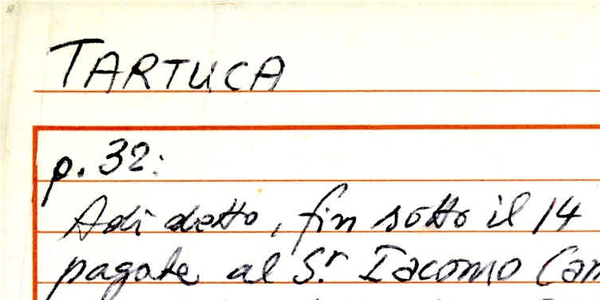 TARTUCA
p. 32:
Adi detto, fin sotto il 14
pagate al S.r Iacomo